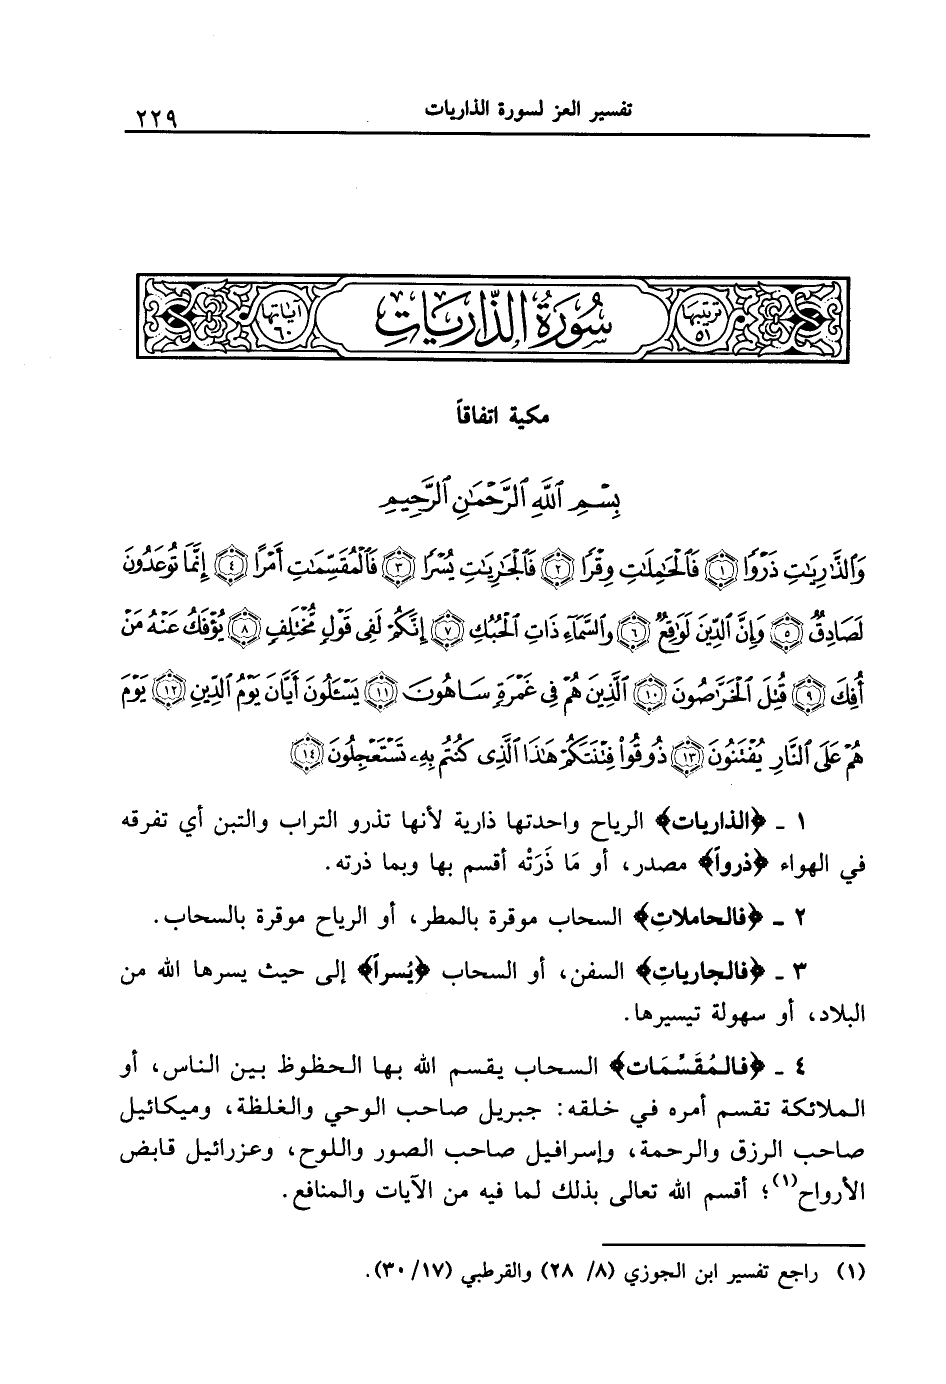 تفسير العز لسورة الذاريات
٢٢٩
ترتيبها ٥١
سُورَةُ الذَّارِيَاتِ
آياتها ٦٠
مكية اتفاقاً
بِسْمِ ٱللَّهِ ٱلرَّحْمَٰنِ ٱلرَّحِيمِ
وَٱلذَّٰرِيَٰتِ ذَرْوًا ١ فَٱلْحَٰمِلَٰتِ وِقْرًا ٢ فَٱلْجَٰرِيَٰتِ يُسْرًا ٣ فَٱلْمُقَسِّمَٰتِ أَمْرًا ٤ إِنَّمَا تُوعَدُونَ
لَصَادِقٌ ٥ وَإِنَّ ٱلدِّينَ لَوَٰقِعٌ ٦ وَٱلسَّمَآءِ ذَاتِ ٱلْحُبُكِ ٧ إِنَّكُمْ لَفِى قَوْلٍ مُّخْتَلِفٍ ٨ يُؤْفَكُ عَنْهُ مَنْ
أُفِكَ ٩ قُتِلَ ٱلْخَرَّٰصُونَ ١٠ ٱلَّذِينَ هُمْ فِى غَمْرَةٍ سَاهُونَ ١١ يَسْـَٔلُونَ أَيَّانَ يَوْمُ ٱلدِّينِ ١٢ يَوْمَ
هُمْ عَلَى ٱلنَّارِ يُفْتَنُونَ ١٣ ذُوقُوا۟ فِتْنَتَكُمْ هَٰذَا ٱلَّذِى كُنتُم بِهِۦ تَسْتَعْجِلُونَ ١٤
١ ـ ﴿الذاريات﴾ الرياح واحدتها ذارية لأنها تذرو التراب والتبن أي تفرقه
في الهواء ﴿ذرواً﴾ مصدر، أو مَا ذَرَتْه أقسم بها وبما ذرته.
٢ ـ ﴿فالحاملاتِ﴾ السحاب موقرة بالمطر، أو الرياح موقرة بالسحاب.
٣ ـ ﴿فالجارياتِ﴾ السفن، أو السحاب ﴿يُسراً﴾ إلى حيث يسرها الله من
البلاد، أو سهولة تيسيرها.
٤ ـ ﴿فالمُقَسِّمَات﴾ السحاب يقسم الله بها الحظوظ بين الناس، أو
الملائكة تقسم أمره في خلقه: جبريل صاحب الوحي والغلظة، وميكائيل
صاحب الرزق والرحمة، وإسرافيل صاحب الصور واللوح، وعزرائيل قابض
الأرواح(١)؛ أقسم الله تعالى بذلك لما فيه من الآيات والمنافع.
(١) راجع تفسير ابن الجوزي (٨/ ٢٨) والقرطبي (١٧/ ٣٠).